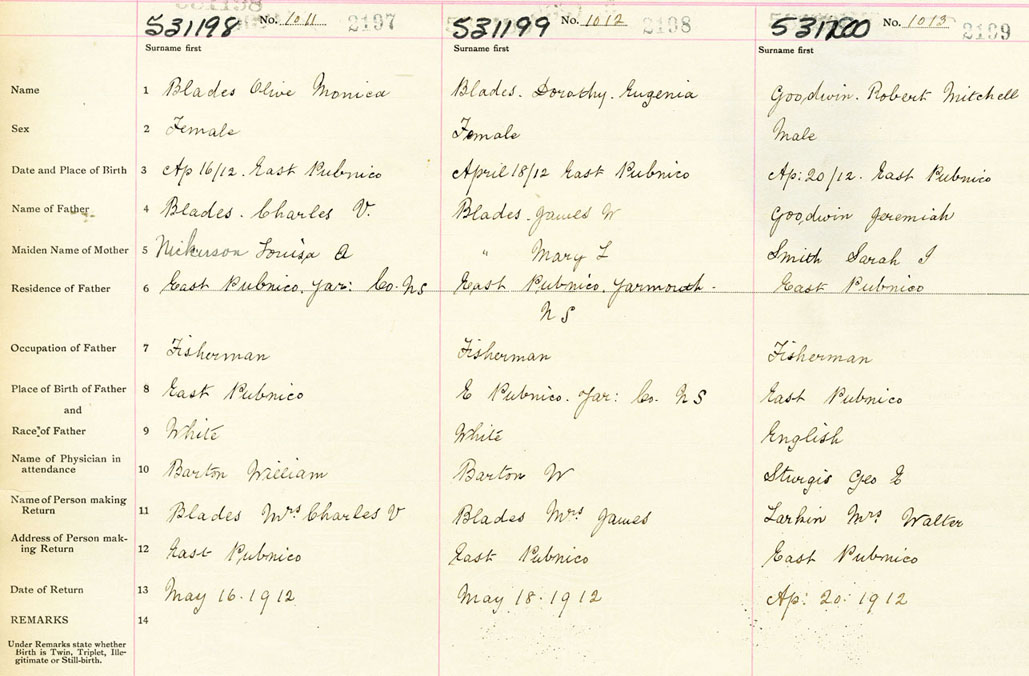 531198 No. 1011 2197 531199 No. 1012 2198 531200 No. 1013 2199
Surname first Surname first Surname first
Name 1 Blades Olive Monica Blades. Dorothy. Eugenia Goodwin. Robert Mitchell
Sex 2 Female Female Male
Date and Place of Birth 3 Ap 16/12. East Pubnico April 18/12 East Pubnico Ap: 20/12. East Pubnico
Name of Father 4 Blades. Charles V. Blades. James W Goodwin Jeremiah
Maiden Name of Mother 5 Nickerson Louisa A " Mary L Smith Sarah J
Residence of Father 6 East Pubnico. Yar: Co. NS East Pubnico. Yarmouth. East Pubnico
NS
Occupation of Father 7 Fisherman Fisherman Fisherman
Place of Birth of Father 8 East Pubnico E Pubnico. Yar: Co. NS East Pubnico
and
Race of Father 9 White White English
Name of Physician in
attendance 10 Barton William Barton W Sturgis Geo E
Name of Person making
Return 11 Blades Mrs Charles V Blades Mrs James Larkin Mrs Walter
Address of Person mak-
ing Return 12 East Pubnico East Pubnico East Pubnico
Date of Return 13 May 16. 1912 May 18. 1912 Ap: 20. 1912
REMARKS 14
Under Remarks state whether
Birth is Twin, Triplet, Ille-
gitimate or Still-birth.